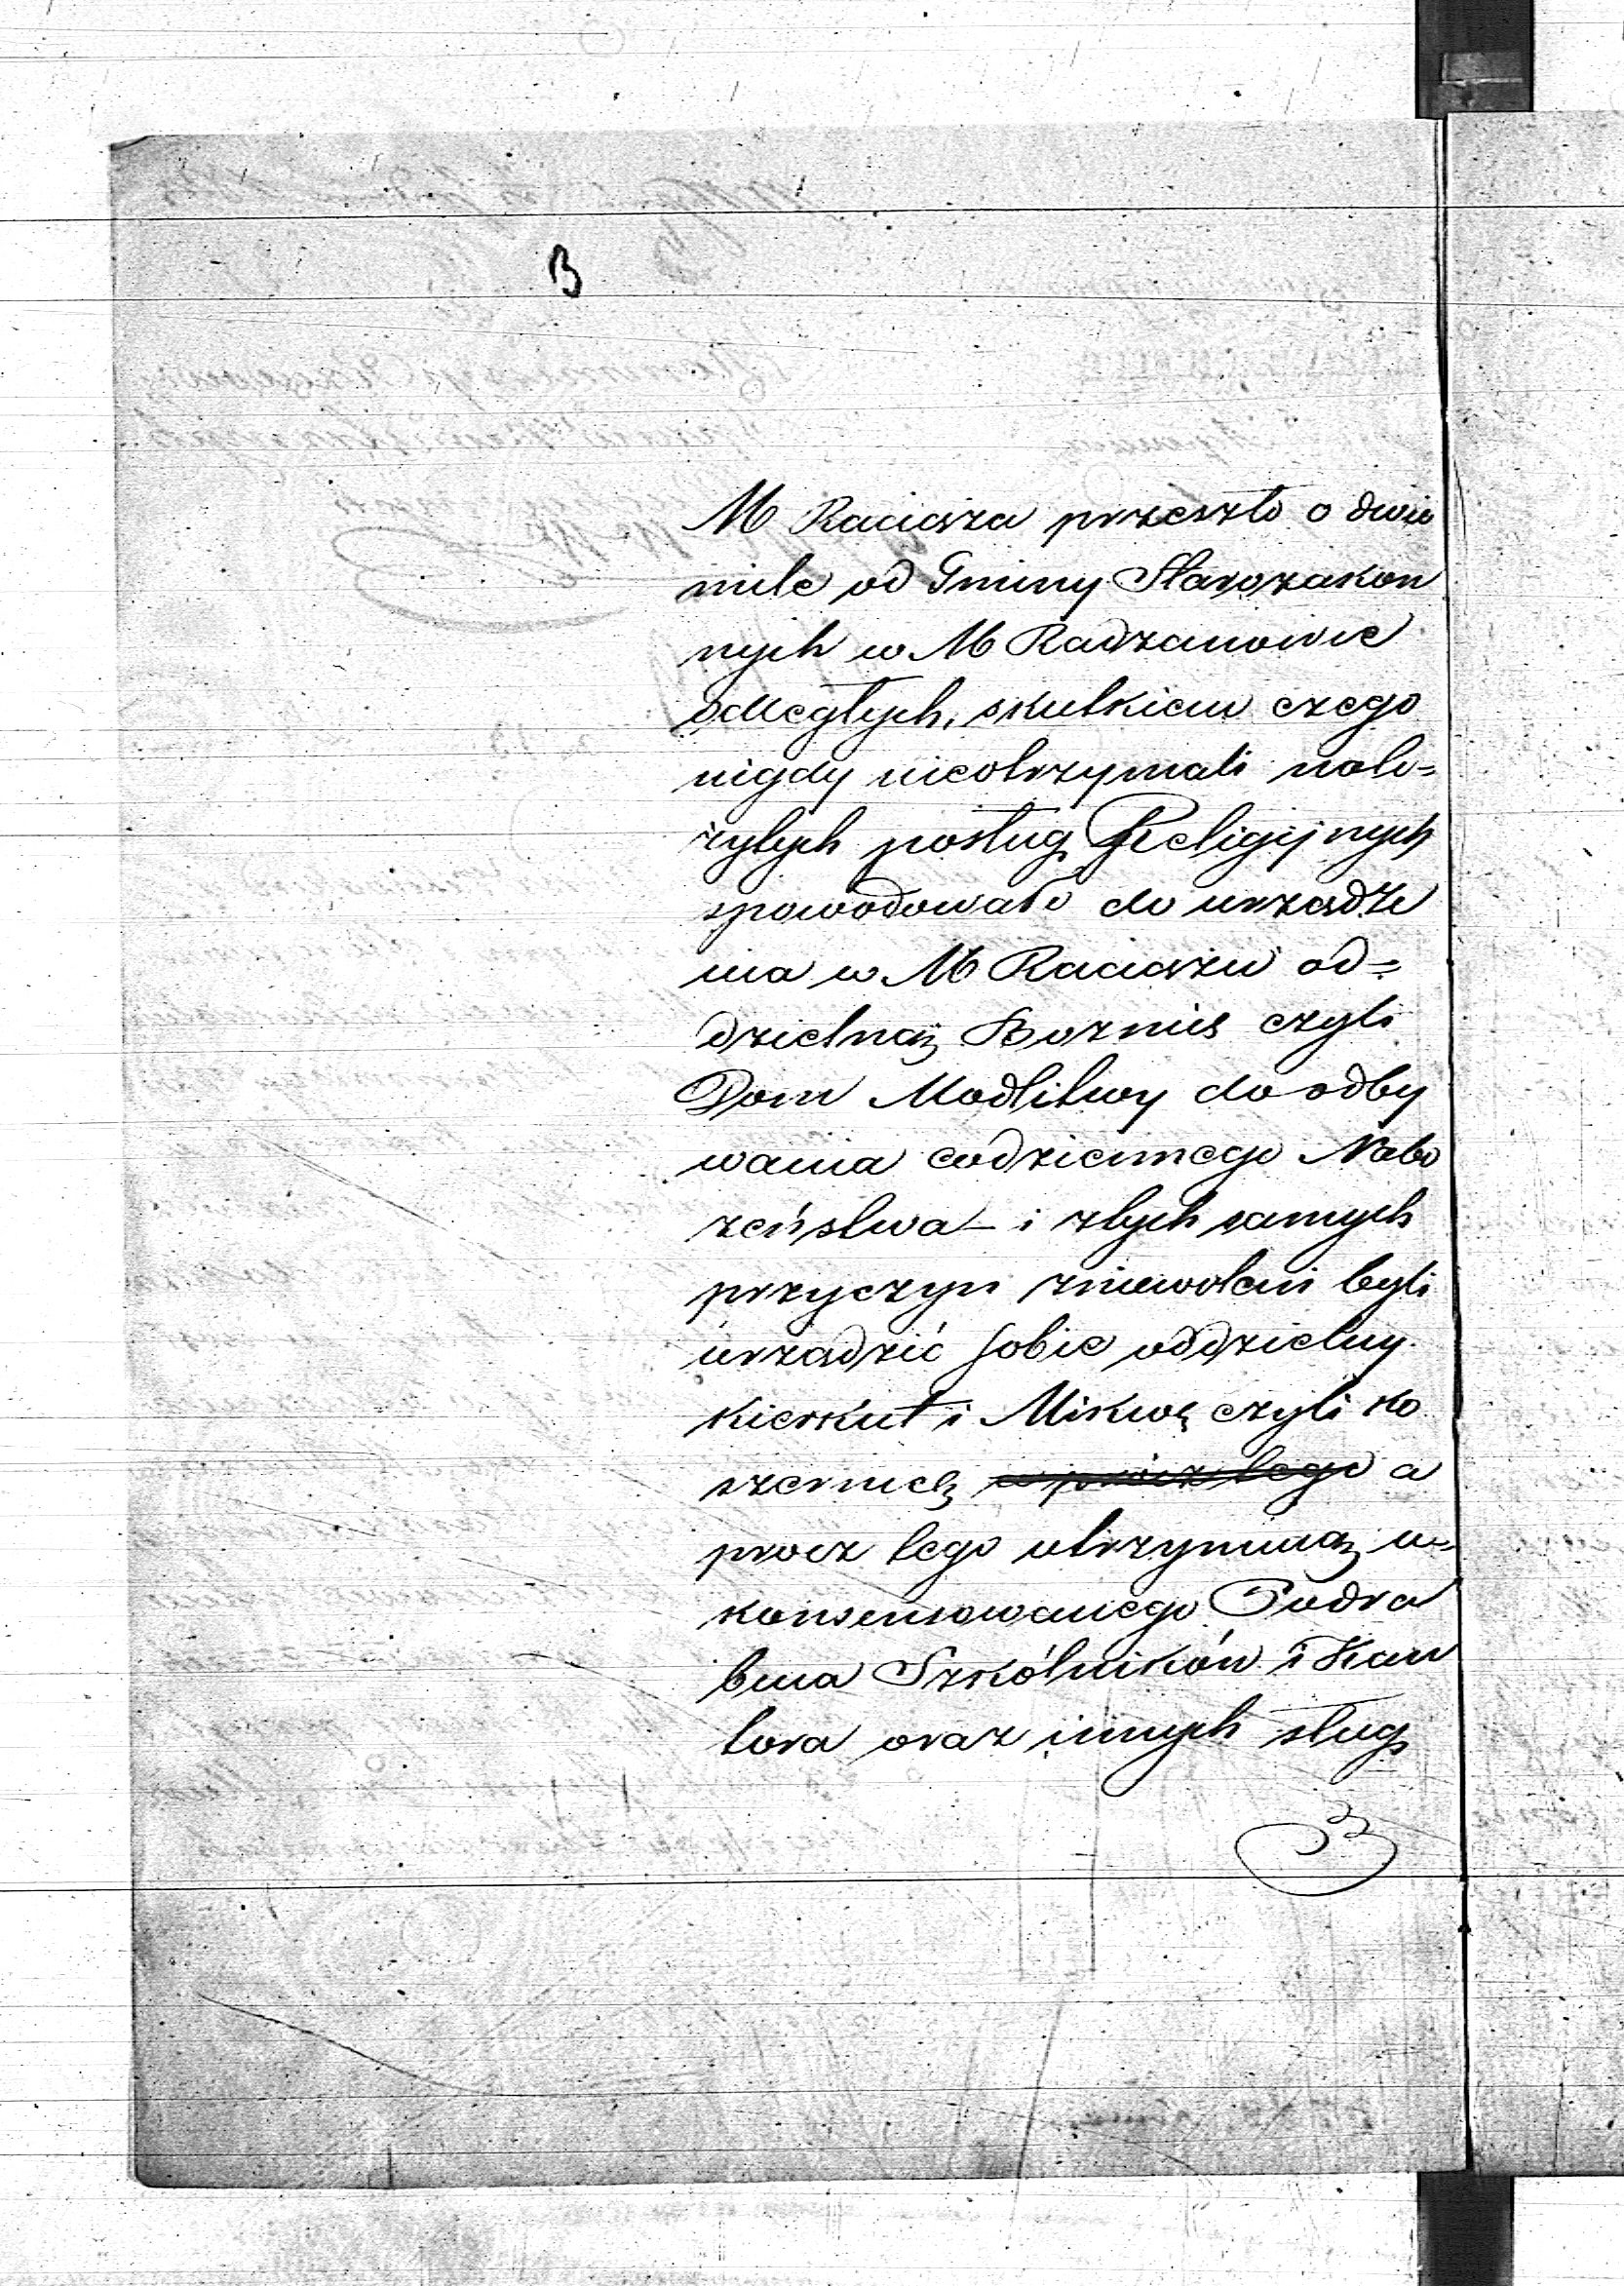 B
M Raciąża przeszło o dwie
mile od Gminy Starozakon
nych w M Radzanowie
odległych, skutkiem czego
nigdy nieotrzymali nale=
żytych posług Religijnych
spowodowało do urządze
nia w M Raciążu od=
dzielną Boznicę czyli
Dom Modlitwy do odby
wania codziennego Nabo
żeństwa – i z tych samych
przyczyn zniewoleni byli
urządzić sobie oddzielny
kierkut i Mikwę czyli ko
szernię a oprócz tego a
procz tego utrzymują u=
konsensowanego Podra
bina Szkólników i Kan
tora oraz innych sług